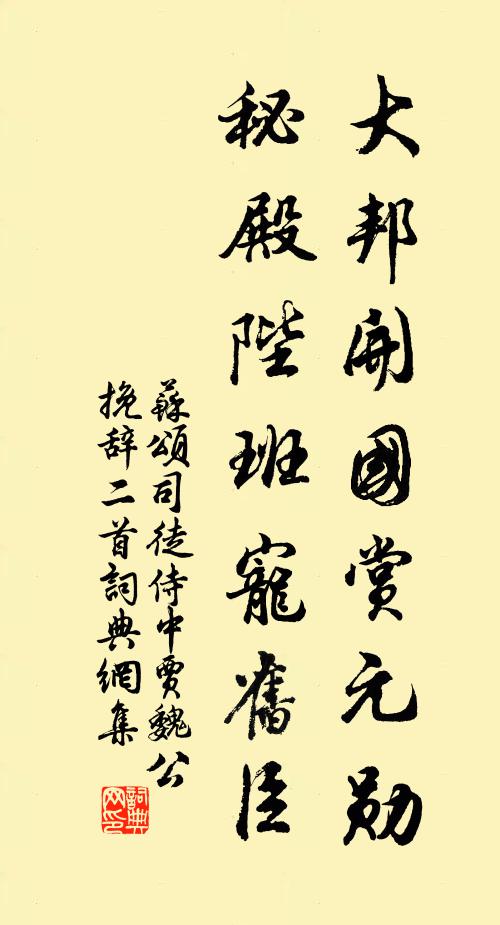 大邦開國賞元勛
秘殿陛班寵舊臣
蘇頌司徒侍中賈魏公
挽辞二首詞典網集
詞典网印